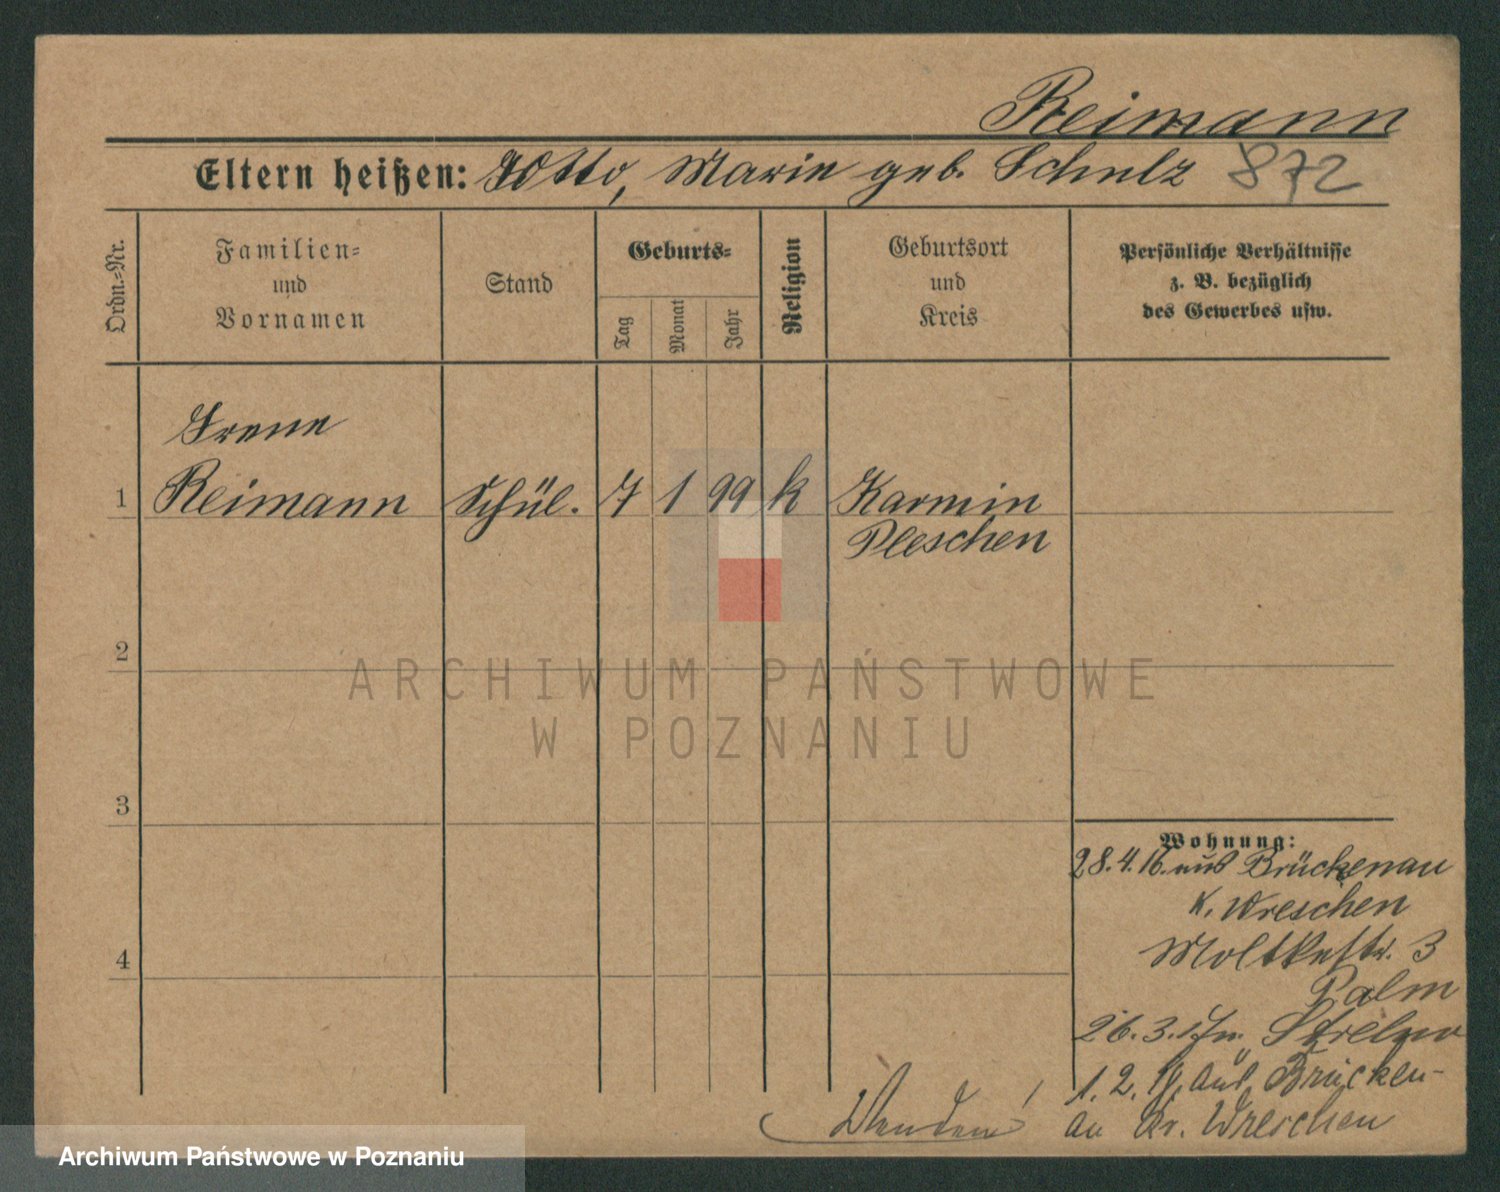 Reimann
Eltern heißen: Otto, Marie geb. Schulz 872
Ordn.-Nr.
Familien-
und
Vornamen
Stand
Geburts-
Tag
Monat
Jahr
Religion
Geburtsort
und
Kreis
Persönliche Verhältnisse
z. B. bezüglich
des Gewerbes usw.
Irene
1 Reimann Schül. 7 1 99 k Karmin
Pleschen
2
3
4
ARCHIWUM PAŃSTWOWE
W POZNANIU
Wohnung:
28.4.16. aus Brückenau
K. Wreschen
Moltkestr. 3
Palm
26.3. Strelno
1.2. aus Brücken-
au Kr. Wreschen
Wenden!
Archiwum Państwowe w Poznaniu